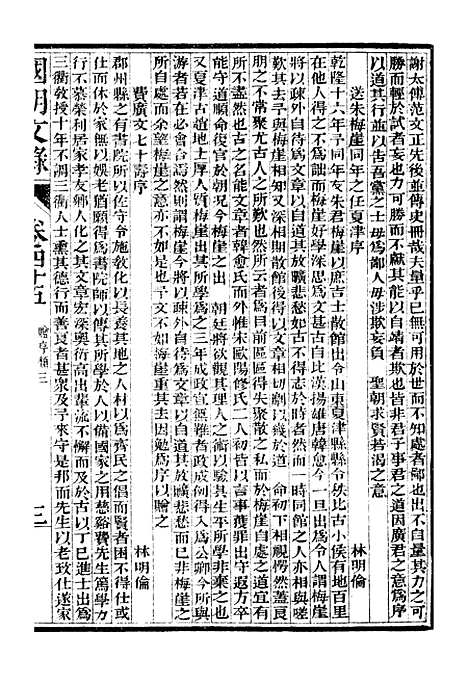 謝太傅范文正先後並傳史冊哉夫量乎已無可用於世而不知處者鄙也不自量其力之可
勝而輕於試者妄也力可勝而不獻以自靖者欺也皆非君子事君之道因廣君之意爲序
以道其行並以告吾黨之士毋爲鄙人毋涉欺妄負　聖朝求賢若渴之意
送朱梅崖同年之任夏津序　林明倫
乾隆十六年予同年友朱君梅崖以庶吉士散館出令山東夏津縣縣令秩比古小侯有地百里
在他人得之不爲詘而予獨爲梅崖好學深思工爲文章自比漢揚雄唐韓愈今一出爲令人皆
將以疎外自待爲文章以自道其放曠悲愁如古不得志於時者然而一二同年亦相與咨嗟
歎其去予與梅崖相知又深相期散館後同寓於梅崖以文章相切劘以幾於道　命初下相視愕然蓋良
朋之不常聚尤古人之所歎也然予以爲目前區區得失聚散之私而於梅崖自處之道宜有
所不然盡也古之名能文章者韓愈氏而外惟宋歐陽修氏二人初皆以言事獲罪出守遐方卒
能守道順命復官於朝今梅崖之出　朝廷將欲觀其理人之術以驗其生平所學非棄之也
又夏津古趙地士大夫質梅崖出其所學爲之三年成政宜無難者政成則得入爲公卿今所與
游者若在必會合焉然則謂梅崖今將以疎外自待爲文章以自道其放曠悲愁而已非梅崖之
所自處而余望梅崖之意亦不如是也予文不如梅崖重其去因勉爲序以贈之
費廣文七十壽序　林明倫
郡州縣之有書院所以佐守令施敎化以長養其地之人材以爲齊民之倡而賢者困不得仕或
仕而休於家無以娛老猶願得爲書院師以傳其所學於人以備國家之用慈谿費先生篤學
行不慕榮利居家孝友鄉人化之其文章宏深奧衍高出輩流不懈而及於古以丁巳進士出爲
三衢敎授十年不調三衢人士熏其德行而善良者甚衆及予來守是邦而先生以老致仕遂家
國朝文錄　卷四十五　贈序類三　三